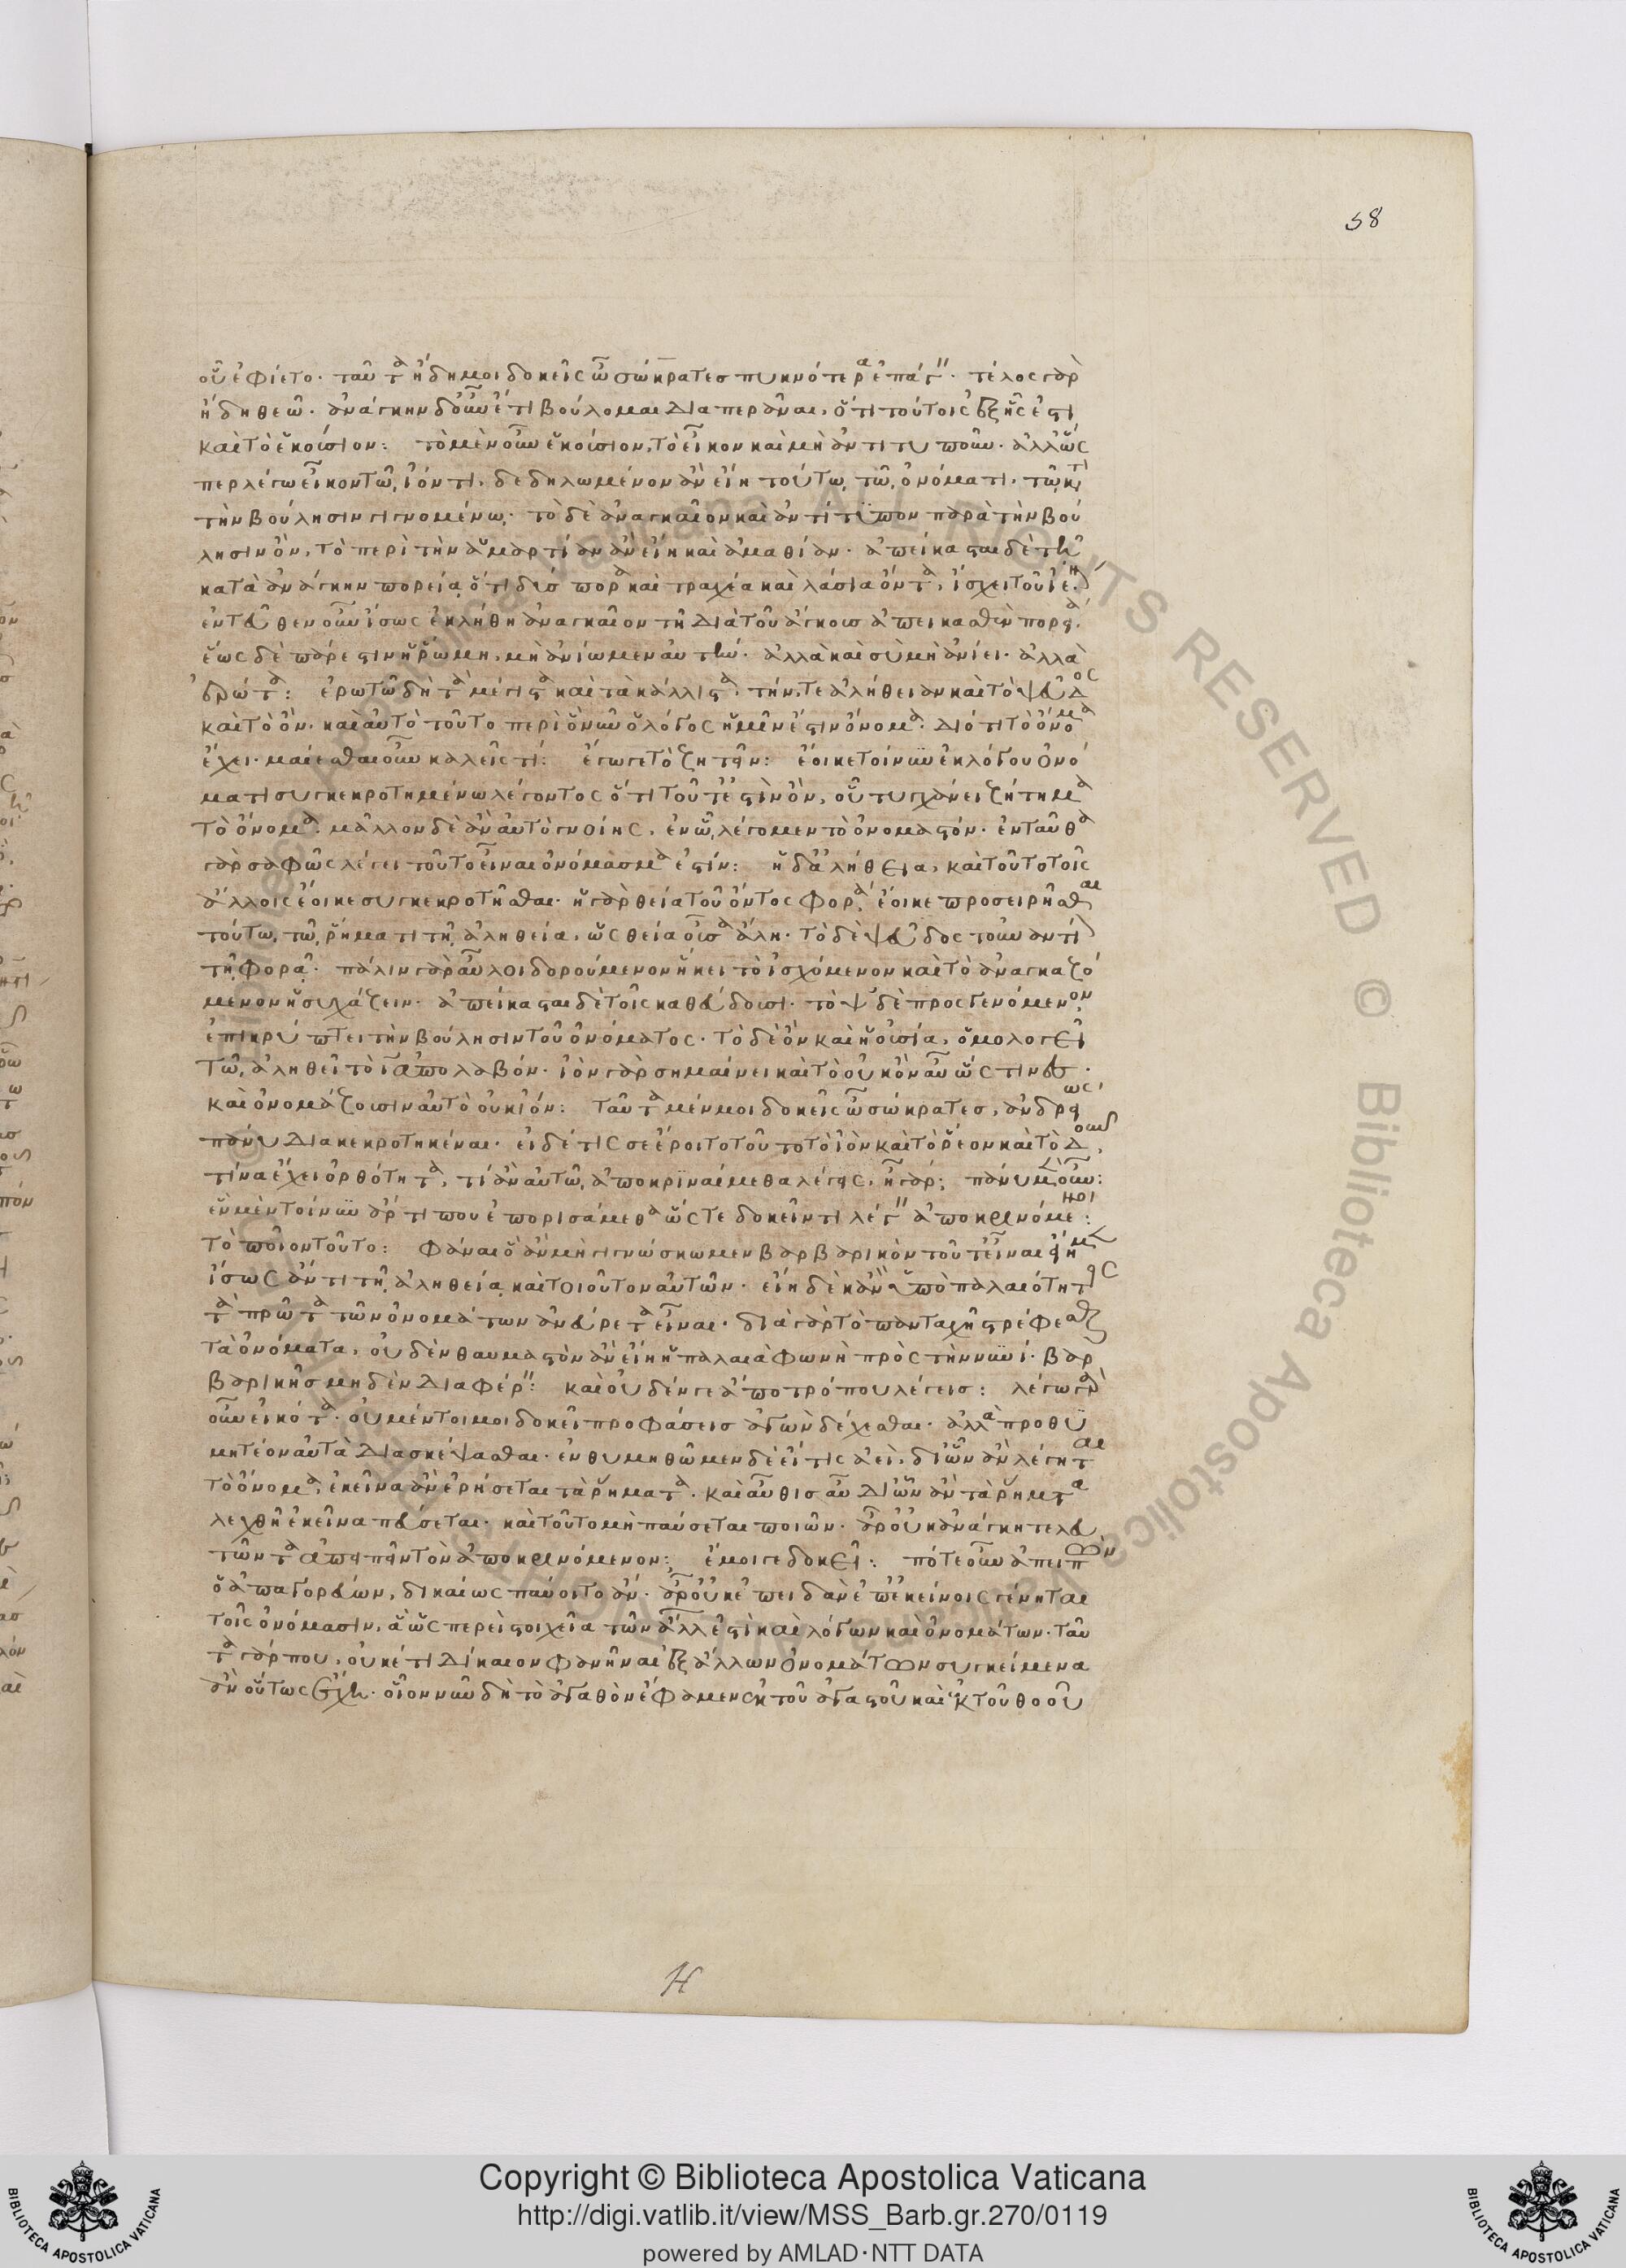 58
οὗ ἐφίετο. ταῦτα ἤδη μοι δοκεῖς ὦ σώκρατες πυκνότερα ἐπάγειν. τέλος γὰρ
ἤδη θεῶ. ἀνάγκην δ' οὖν ἔτι βούλομαι διαπερᾶναι, ὅτι τούτοις ἑξῆς ἐστι
καὶ τὸ ἑκούσιον: τὸ μὲν οὖν ἑκούσιον, τὸ εἶκον καὶ μὴ ἀντιτυποῦν. ἀλλ' ὥς
περ λέγω εἶκον τῶ ἰόντι, δεδηλωμένον ἂν εἴη τούτω τῶ ὀνόματι. τῶ κατὰ
τὴν βούλησιν γιγνομένω. τὸ δὲ ἀναγκαῖον καὶ ἀντίτυπον παρὰ τὴν βού
λησιν ὂν, τὸ περὶ τὴν ἁμαρτίαν ἂν εἴη καὶ ἀμαθίαν. ἀπείκασται δὲ τῆ
κατὰ ἀνάγκην πορεία, ὅτι δύσπορα καὶ τραχέα καὶ λάσια ὄντα, ἴσχει τοῦ ἰέναι.
ἐντεῦθεν οὖν ἴσως ἐκλήθη ἀναγκαῖον τῆ διὰ τοῦ ἄγκους ἀπεικασθὲν πορεία.
ἕως δὲ πάρεστιν ἡ ῥώμη, μὴ ἀνίωμεν αὐτήν. ἀλλὰ καὶ σὺ μὴ ἀνίει. ἀλλὰ
ἐρώτα: ἐρωτῶ δὴ τὰ μέγιστα καὶ τὰ κάλλιστα. τήν, τε ἀλήθειαν καὶ τὸ ψεῦδος
καὶ τὸ ὄν. καὶ αὐτὸ τοῦτο περὶ ὧν νῦν ὁ λόγος ἡμῖν ἐστιν ὄνομα. διότι τὸ ὄνομα
ἔχει. μαίεσθαι οὖν καλεῖς τί: ἔγωγε τὸ ζητεῖν: ἔοικε τοίνυν ἐκ λόγου ὀνό
ματι συγκεκροτημένω λέγοντος ὅτι τοῦτ' ἔστιν ὄν, οὗ τυγχάνει ζήτημα
τὸ ὄνομα. μᾶλλον δὲ ἂν αὐτὸ γνοίης, ἐν ὧ λέγομεν τὸ ὀνομαστόν. ἐνταῦθα
γὰρ σαφῶς λέγει τοῦτο εἶναι ὀνόμασμα ἐστίν: ἡ δ' ἀλήθεια, καὶ τοῦτο τοῖς
ἄλλοις ἔοικε συγκεκροτῆσθαι. ἡ γὰρ θεία τοῦ ὄντος φορά. ἔοικε προσειρῆσθαι
τούτω τῶ ῥήματι τῆ ἀληθεία, ὡς θεία οὖσα ἄλη. τὸ δὲ ψεῦδος τοὐναντίον
τῆ φορᾶ. πάλιν γὰρ αὖ λοιδορούμενον ἥκει τὸ ἰσχόμενον καὶ τὸ ἀναγκαζό
μενον ἡσυχάζειν. ἀπείκασται δὲ τοῖς καθεύδουσι. τὸ ψ δὲ προσγενόμενον
ἐπικρύπτει τὴν βούλησιν τοῦ ὀνόματος. τὸ δὲ ὂν καὶ ἡ οὐσία, ὁμολογεῖ
τῶ ἀληθεῖ τὸ ἰῶτα ἀπολαβόν. ἰὸν γὰρ σημαίνει καὶ τὸ οὐκ ὂν αὖ ὥς τινες.
καὶ ὀνομάζουσιν αὐτὸ οὐκ ἰόν: ταῦτα μέν μοι δοκεῖς ὦ σώκρατες, ἀνδρείως
πάνυ διακεκροτηκέναι. εἰ δέ τις σε ἔροιτο τοῦτο τὸ ἰὸν καὶ τὸ ῥέον καὶ τὸ δοῦν,
τίνα ἔχει ὀρθότητα, τί ἂν αὐτῶ ἀποκριναίμεθα λέγεις, ἦ γάρ; πάνυ μὲν οὖν:
ἓν μὲν τοίνυν ἄρτι που ἐπορισάμεθα ὥστε δοκεῖν τι λέγειν ἀποκρινόμενοι:
τὸ ποῖον τοῦτο: φάναι ὃ ἂν μὴ γιγνώσκωμεν βαρβαρικόν τοῦτ' εἶναι. εἴη μὲν
ἴσως ἄν τι τῆ ἀληθεία καὶ τοιοῦτον αὐτῶν. εἴη δὲ κἂν ὑπὸ παλαιότητος
τὰ πρῶτα τῶν ὀνομάτων ἀνεύρετα εἶναι. διὰ γὰρ τὸ πανταχῆ στρέφεσθαι
τὰ ὀνόματα, οὐδὲν θαυμαστὸν ἂν εἴη ἡ παλαιὰ φωνὴ πρὸς τὴν νυνὶ. βαρ
βαρικῆς μηδὲν διαφέρειν: καὶ οὐδέν γε ἀπὸ τρόπου λέγεις: λέγω γὰρ
οὖν εἰκότα. οὐ μέντοι μοι δοκεῖ προφάσεις ἀγὼν δέχεσθαι. ἀλλὰ προθυ
μητέον αὐτὰ διασκέψασθαι. ἐνθυμηθῶμεν δὲ εἴ τις ἀεὶ, δι' ὧν ἂν λέγηται
τὸ ὄνομα, ἐκεῖνα ἀνερήσεται τὰ ῥήματα. καὶ αὖθις αὖ δι' ὧν ἂν τὰ ῥήματα
λεχθῆ ἐκεῖνα πεύσεται. καὶ τοῦτο μὴ παύσεται ποιῶν. ἆρ' οὐκ ἀνάγκη τελευ
τῶντα ἀπειπεῖν τὸν ἀποκρινόμενον: ἔμοιγε δοκεῖ: πότε οὖν ἀπειπὼν
ὁ ἀπαγορεύων, δικαίως παύοιτο ἄν. ἆρ' οὐκ ἐπειδὰν ἐπ' ἐκείνοις γένηται
τοῖς ὀνόμασιν, ἃ ὡσπερεὶ στοιχεῖα τῶν ἄλλων ἐστὶ καὶ λόγων καὶ ὀνομάτων. ταῦ
τα γάρ που, οὐκέτι δίκαιον φανῆναι ἐξ ἄλλων ὀνομάτων συγκείμενα
ἂν οὕτως ἔχη. οἷον νῦν δὴ τὸ ἀγαθὸν ἔφαμεν ἐκ τοῦ ἀγαστοῦ καὶ ἐκ τοῦ θοοῦ
Copyright © Biblioteca Apostolica Vaticana
http://digi.vatlib.it/view/MSS_Barb.gr.270/0119
powered by AMLAD·NTT DATA